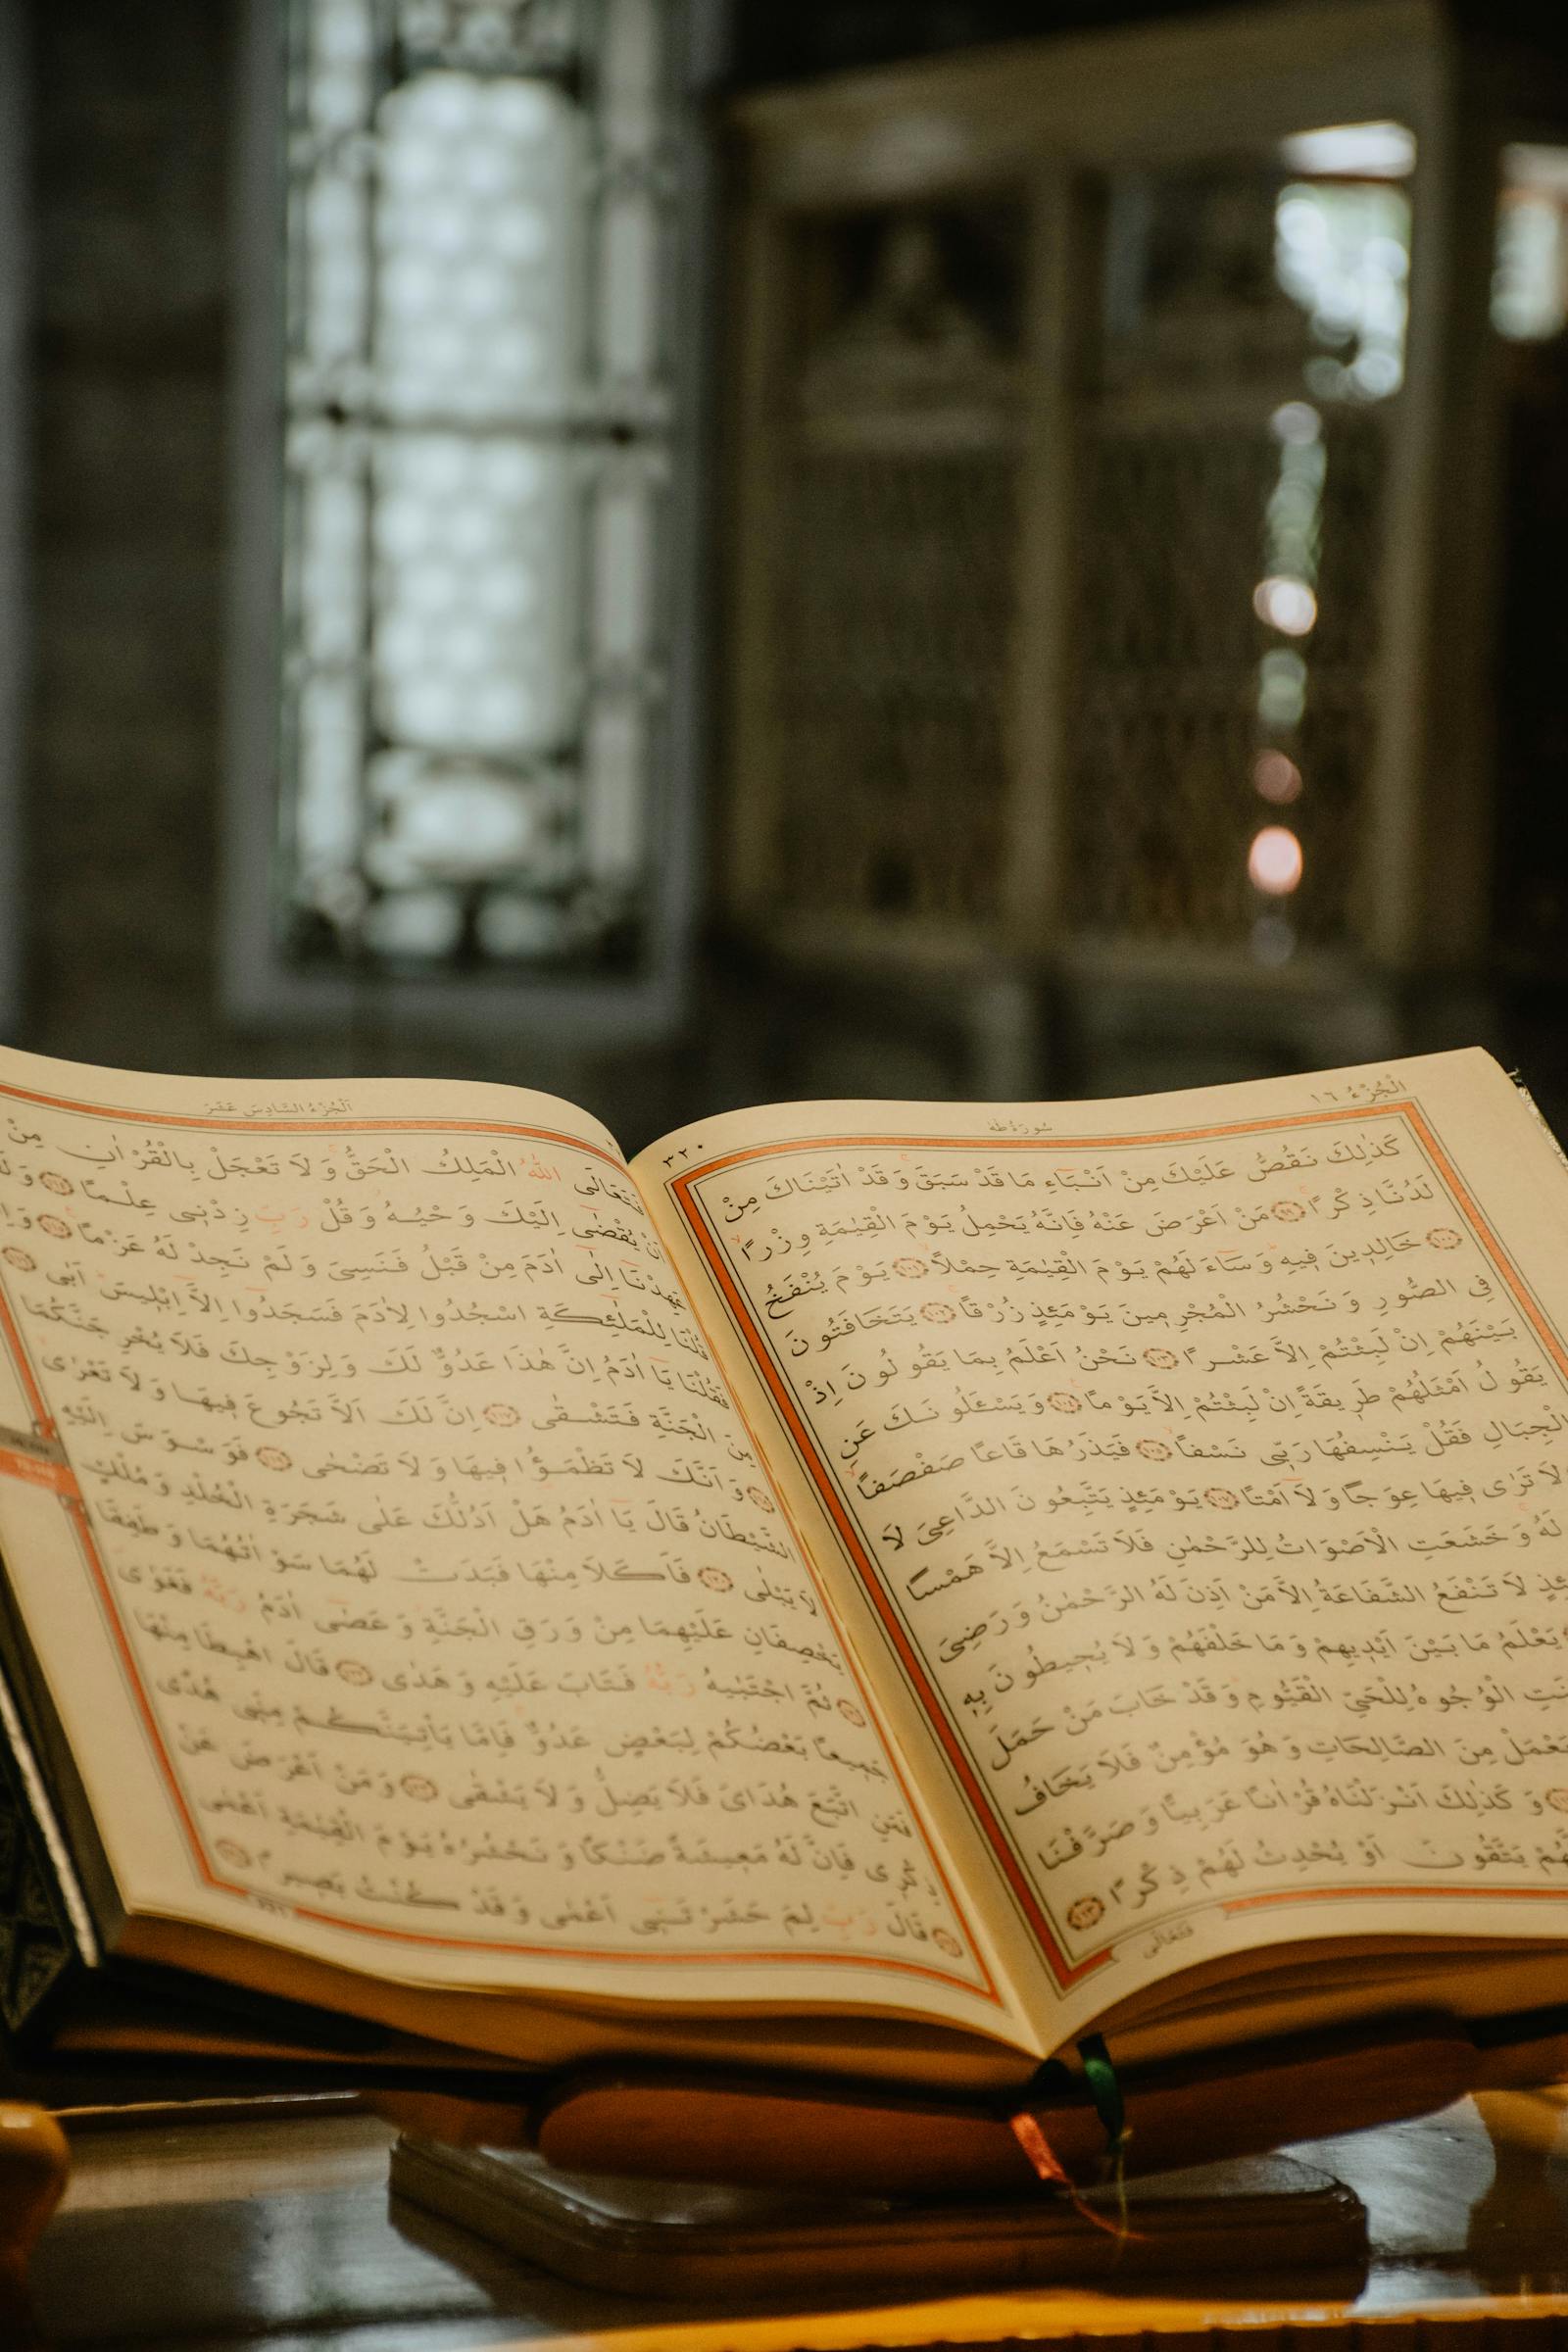 الْجُزْءُ ١٦ سُورَةُ طٰهٰ ٣٢٠
كَذٰلِكَ نَقُصُّ عَلَيْكَ مِنْ اَنْبَٓاءِ مَا قَدْ سَبَقَۚ وَقَدْ اٰتَيْنَاكَ مِنْ
لَدُنَّا ذِكْرًاۚ مَنْ اَعْرَضَ عَنْهُ فَاِنَّهُ يَحْمِلُ يَوْمَ الْقِيٰمَةِ وِزْرًاۙ
خَالِدِينَ فِيهِۜ وَسَٓاءَ لَهُمْ يَوْمَ الْقِيٰمَةِ حِمْلًاۙ يَوْمَ يُنْفَخُ
فِى الصُّورِ وَنَحْشُرُ الْمُجْرِمِينَ يَوْمَئِذٍ زُرْقًاۚ يَتَخَافَتُونَ
بَيْنَهُمْ اِنْ لَبِثْتُمْ اِلَّا عَشْرًا نَحْنُ اَعْلَمُ بِمَا يَقُولُونَ اِذْ
يَقُولُ اَمْثَلُهُمْ طَرِيقَةً اِنْ لَبِثْتُمْ اِلَّا يَوْمًا وَيَسْـَٔلُونَكَ عَنِ
الْجِبَالِ فَقُلْ يَنْسِفُهَا رَبّى نَسْفًاۙ فَيَذَرُهَا قَاعًا صَفْصَفًاۙ
لَا تَرٰى فِيهَا عِوَجًا وَلَٓا اَمْتًاۜ يَوْمَئِذٍ يَتَّبِعُونَ الدَّاعِىَ لَا
لَهُۚ وَخَشَعَتِ الْاَصْوَاتُ لِلرَّحْمٰنِ فَلَا تَسْمَعُ اِلَّا هَمْسًا
لَا تَنْفَعُ الشَّفَاعَةُ اِلَّا مَنْ اَذِنَ لَهُ الرَّحْمٰنُ وَرَضِىَ
يَعْلَمُ مَا بَيْنَ اَيْدِيهِمْ وَمَا خَلْفَهُمْ وَلَا يُحِيطُونَ بِهِ
الْوُجُوهُ لِلْحَىِّ الْقَيُّومِۜ وَقَدْ خَابَ مَنْ حَمَلَ
مِنَ الصَّالِحَاتِ وَهُوَ مُؤْمِنٌ فَلَا يَخَافُ
وَكَذٰلِكَ اَنْزَلْنَاهُ قُرْاٰنًا عَرَبِيًّا وَصَرَّفْنَا
يَتَّقُونَ اَوْ يُحْدِثُ لَهُمْ ذِكْرًا
فَتَعَالَى
اَلْجُزْءُ السَّادِسَ عَشَرَ
فَتَعَالَى اللّٰهُ الْمَلِكُ الْحَقُّۚ وَلَا تَعْجَلْ بِالْقُرْاٰنِ مِنْ
اَنْ يُقْضٰٓى اِلَيْكَ وَحْيُهُۘ وَقُلْ رَبِّ زِدْنِى عِلْمًا
عَهِدْنَٓا اِلٰٓى اٰدَمَ مِنْ قَبْلُ فَنَسِىَ وَلَمْ نَجِدْ لَهُ عَزْمًا۟
قُلْنَا لِلْمَلٰٓئِكَةِ اسْجُدُوا لِاٰدَمَ فَسَجَدُٓوا اِلَّٓا اِبْلِيسَۜ اَبٰى
فَقُلْنَا يَٓا اٰدَمُ اِنَّ هٰذَا عَدُوٌّ لَكَ وَلِزَوْجِكَ فَلَا يُخْرِجَنَّكُمَا
مِنَ الْجَنَّةِ فَتَشْقٰى اِنَّ لَكَ اَلَّا تَجُوعَ فِيهَا وَلَا تَعْرٰى
وَاَنَّكَ لَا تَظْمَؤُ۬ا فِيهَا وَلَا تَضْحٰى فَوَسْوَسَ اِلَيْهِ
الشَّيْطَانُ قَالَ يَٓا اٰدَمُ هَلْ اَدُلُّكَ عَلٰى شَجَرَةِ الْخُلْدِ وَمُلْكٍ
لَا يَبْلٰى فَاَكَلَا مِنْهَا فَبَدَتْ لَهُمَا سَوْاٰتُهُمَا وَطَفِقَا
يَخْصِفَانِ عَلَيْهِمَا مِنْ وَرَقِ الْجَنَّةِۘ وَعَصٰٓى اٰدَمُ رَبَّهُ فَغَوٰى
ثُمَّ اجْتَبٰيهُ رَبُّهُ فَتَابَ عَلَيْهِ وَهَدٰى قَالَ اهْبِطَا مِنْهَا
جَمِيعًا بَعْضُكُمْ لِبَعْضٍ عَدُوٌّۚ فَاِمَّا يَأْتِيَنَّكُمْ مِنِّى هُدًى
فَمَنِ اتَّبَعَ هُدَاىَ فَلَا يَضِلُّ وَلَا يَشْقٰى وَمَنْ اَعْرَضَ عَنْ
ذِكْرِى فَاِنَّ لَهُ مَعِيشَةً ضَنْكًا وَنَحْشُرُهُ يَوْمَ الْقِيٰمَةِ اَعْمٰى
قَالَ رَبِّ لِمَ حَشَرْتَنِٓى اَعْمٰى وَقَدْ كُنْتُ بَصِيرًا